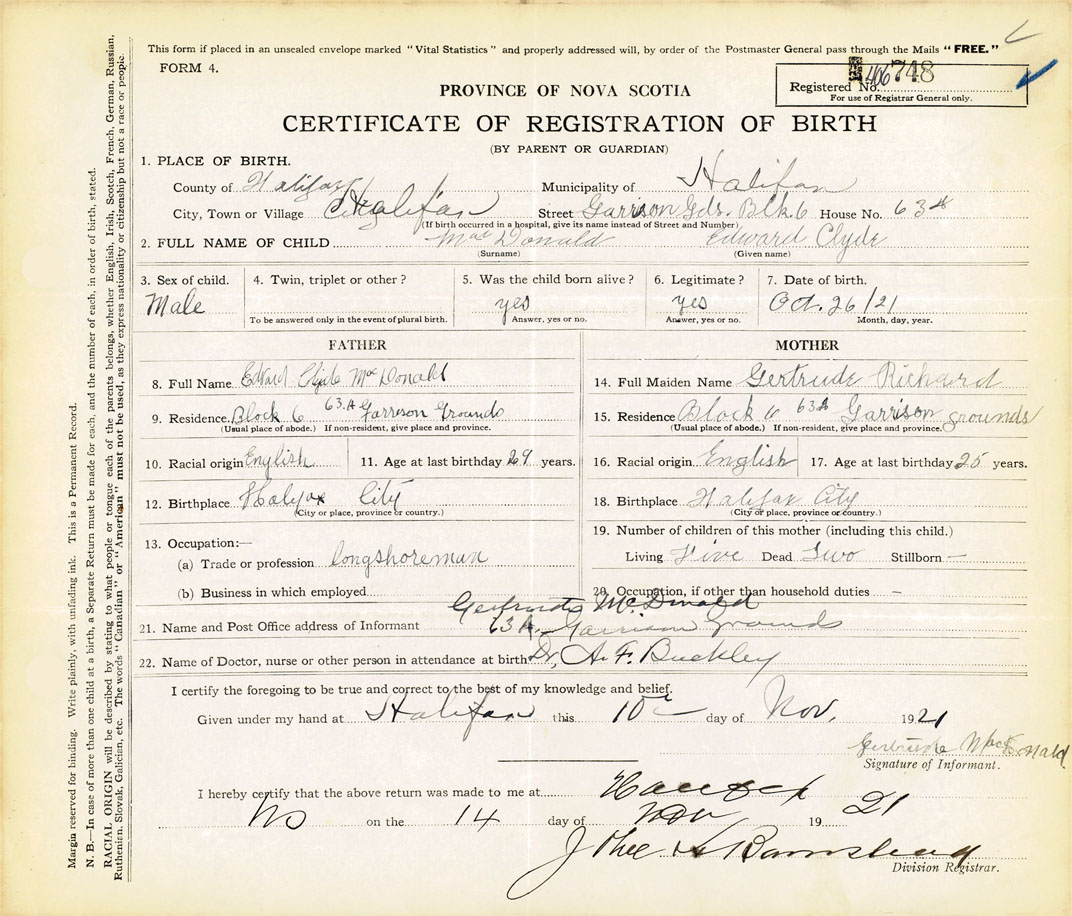 This form if placed in an unsealed envelope marked "Vital Statistics" and properly addressed will, by order of the Postmaster General pass through the Mails "FREE."
FORM 4.
Registered No. 406748
For use of Registrar General only.
PROVINCE OF NOVA SCOTIA
CERTIFICATE OF REGISTRATION OF BIRTH
(BY PARENT OR GUARDIAN)
1. PLACE OF BIRTH.
County of Halifax Municipality of Halifax
City, Town or Village Halifax Street Garrison Gds. Blk. 6 House No. 63A
(If birth occurred in a hospital, give its name instead of Street and Number)
2. FULL NAME OF CHILD MacDonald Edward Clyde
(Surname) (Given name)
3. Sex of child. 4. Twin, triplet or other? 5. Was the child born alive? 6. Legitimate? 7. Date of birth.
Male yes yes Oct. 26/21
To be answered only in the event of plural birth. Answer, yes or no. Answer, yes or no. Month, day, year.
FATHER
8. Full Name Edward Clyde MacDonald
9. Residence Block 6 63.A Garrison Grounds
(Usual place of abode.) If non-resident, give place and province.
10. Racial origin English 11. Age at last birthday 29 years.
12. Birthplace Halifax City
(City or place, province or country.)
13. Occupation:—
(a) Trade or profession longshoreman
(b) Business in which employed
MOTHER
14. Full Maiden Name Gertrude Richard
15. Residence Block 6 63A Garrison grounds
(Usual place of abode.) If non-resident, give place and province.
16. Racial origin English 17. Age at last birthday 25 years.
18. Birthplace Halifax City
(City or place, province or country.)
19. Number of children of this mother (including this child.)
Living Five Dead Two Stillborn —
20. Occupation, if other than household duties —
21. Name and Post Office address of Informant Gertrude McDonald
63 A. Garrison Grounds
22. Name of Doctor, nurse or other person in attendance at birth Dr. A. F. Buckley
I certify the foregoing to be true and correct to the best of my knowledge and belief.
Given under my hand at Halifax this 10 day of Nov. 1921
Gertrude MacDonald
Signature of Informant.
I hereby certify that the above return was made to me at
NS on the 14 day of Nov 19 21
Barnstead
Division Registrar.
Margin reserved for binding. Write plainly, with unfading ink. This is a Permanent Record.
N. B.—In case of more than one child at a birth, a Separate Return must be made for each, and the number of each, in order of birth, stated.
RACIAL ORIGIN will be described by stating to what people or tongue each of the parents belongs, whether English, Irish, Scotch, French, German, Russian,
Ruthenian, Slovak, Galician, etc. The words "Canadian" or "American" must not be used, as they express nationality or citizenship but not a race or people.